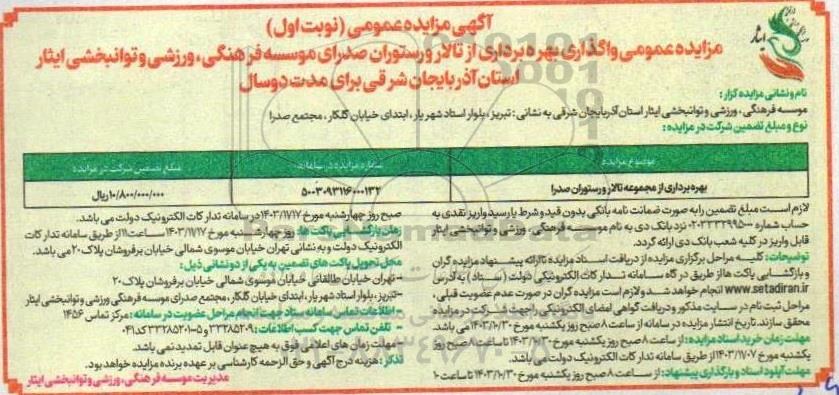 آگهی مزایده عمومی (نوبت اول)
مزایده عمومی واگذاری بهره برداری از تالار و رستوران صدرای موسسه فرهنگی، ورزشی و توانبخشی ایثار
استان آذربایجان شرقی برای مدت دو سال
ایثار
نام و نشانی مزایده گزار:
موسسه فرهنگی، ورزشی و توانبخشی ایثار استان آذربایجان شرقی به نشانی: تبریز، بلوار استاد شهریار، ابتدای خیابان گلکار، مجتمع صدرا
نوع و مبلغ تضمین شرکت در مزایده:
موضوع مزایده
شماره مزایده در سامانه
مبلغ تضمین شرکت در مزایده
بهره برداری از مجموعه تالار و رستوران صدرا
۵۰۰۳۰۹۳۱۱۶۰۰۰۱۳۲
۱۰/۸۰۰/۰۰۰/۰۰۰ ریال
لازم است مبلغ تضمین را به صورت ضمانت نامه بانکی بدون قید و شرط یا رسید واریز نقدی به
حساب شماره ۰۲۰۳۳۳۲۹۹۵۰۰۰ نزد بانک دی به نام موسسه فرهنگی، ورزشی و توانبخشی ایثار
قابل واریز در کلیه شعب بانک دی ارائه گردد.
توضیحات: کلیه مراحل برگزاری مزایده از دریافت اسناد مزایده تا ارائه پیشنهاد مزایده گران
و بازگشایی پاکت ها از طریق درگاه سامانه تدارکات الکترونیکی دولت (ستاد) به آدرس
www.setadiran.ir انجام خواهد شد و لازم است مزایده گران در صورت عدم عضویت قبلی،
مراحل ثبت نام در سایت مذکور و دریافت گواهی امضای الکترونیکی را جهت شرکت در مزایده
محقق سازند. تاریخ انتشار مزایده در سامانه از ساعت ۸ صبح روز یکشنبه مورخ ۱۴۰۳/۱۰/۳۰ می باشد.
مهلت زمان خرید اسناد مزایده: از ساعت ۸ صبح روز یکشنبه مورخ ۱۴۰۳/۱۰/۳۰ تا ساعت ۸ صبح روز
یکشنبه مورخ ۱۴۰۳/۱۱/۰۷ از طریق سامانه تدارکات الکترونیک دولت می باشد.
مهلت آپلود اسناد و بارگذاری پیشنهاد: از ساعت ۸ صبح روز یکشنبه مورخ ۱۴۰۳/۱۰/۳۰ تا ساعت ۱۰
صبح روز چهارشنبه مورخ ۱۴۰۳/۱۱/۱۷ در سامانه تدارکات الکترونیک دولت می باشد.
زمان بازگشایی پاکت ها: روز چهارشنبه مورخ ۱۴۰۳/۱۱/۱۷ ساعت ۱۱ از طریق سامانه تدارکات
الکترونیک دولت و به نشانی تهران خیابان موسوی شمالی خیابان برفروشان پلاک ۲۰ می باشد.
محل تحویل پاکت های تضمین به یکی از دو نشانی ذیل:
- تهران خیابان طالقانی خیابان موسوی شمالی خیابان برفروشان پلاک ۲۰
- تبریز، بلوار استاد شهریار، ابتدای خیابان گلکار، مجتمع صدرای موسسه فرهنگی ورزشی و توانبخشی ایثار
- اطلاعات تماس سامانه ستاد جهت انجام مراحل عضویت در سامانه: مرکز تماس ۱۴۵۶
- تلفن تماس جهت کسب اطلاعات: ۳۳۲۸۵۲۰۹ و ۵-۳۳۲۸۵۲۰۱ کد ۰۴۱
مهلت زمان های اعلامی فوق به هیچ عنوان قابل تمدید نمی باشد.
تذکر: هزینه درج آگهی و حق الزحمه کارشناسی بر عهده برنده مزایده خواهد بود.
مدیریت موسسه فرهنگی، ورزشی و توانبخشی ایثار